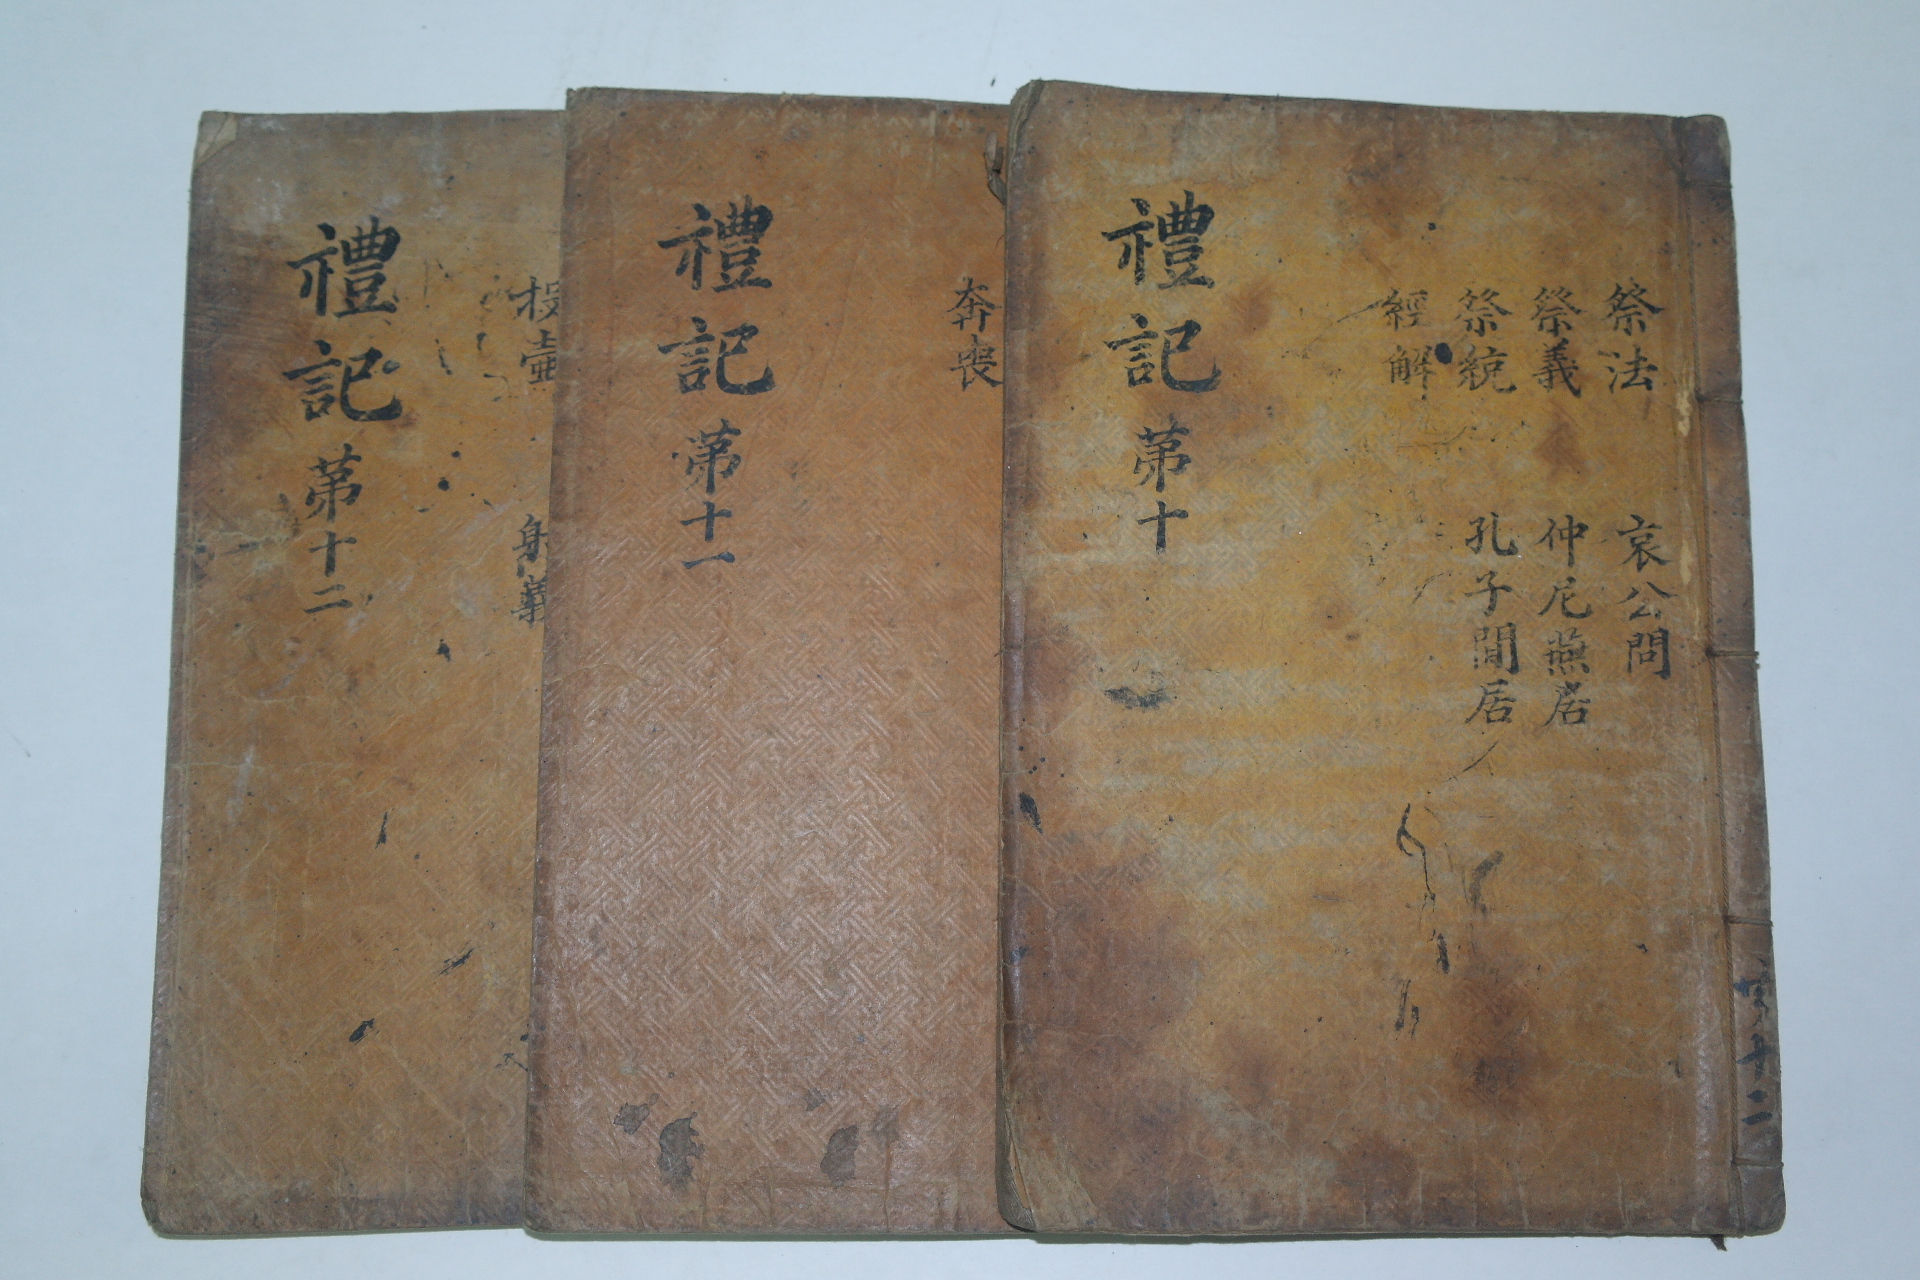 祭法
祭義
祭統
經解
哀公問
仲尼燕居
孔子閒居
禮記 第十
奔喪
禮記 第十一
投壺
射義
禮記 第十二